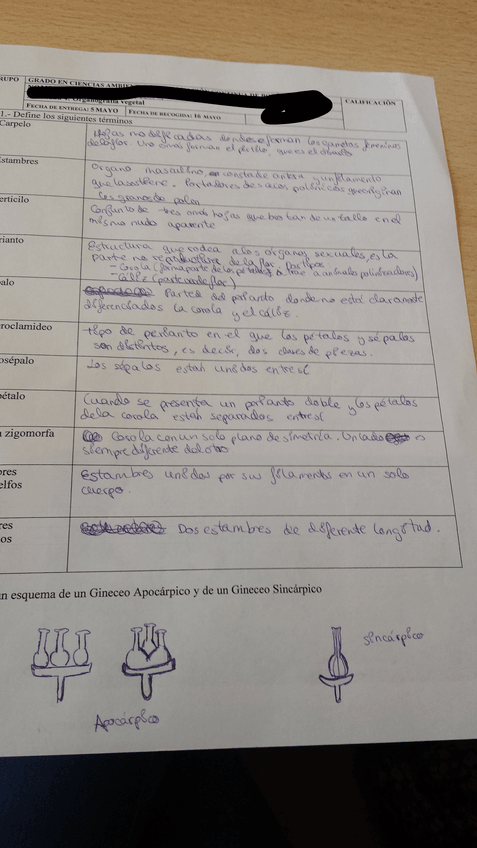 RUPO GRADO EN CIENCIAS AMBIE
Organografía vegetal
FECHA DE ENTREGA: 5 MAYO FECHA DE RECOGIDA: 16 MAYO CALIFICACIÓN
1.- Define los siguientes términos
Carpelo
Hojas modificadas donde se forman los gametos femeninos
de la flor. Uno o más forman el pistilo, que es el
Estambres
Órgano masculino, constade antera y un filamento
que la sostiene. Portadores de sacos polínicos que originan
los granos de polen
erticilo
Conjunto de tres o más hojas que brotan de un tallo en el
mismo nudo aparente
rianto
Estructura que rodea a los órganos sexuales, es la
parte no reproductiva de la flor. Dos tipos
- Corola (forma parte de los pétalos y atrae a animales polinizadores)
- Cáliz (parte verde flor)
alo
Parte del perianto donde no está claramente
diferenciados la corola y el cáliz.
roclamideo
tipo de perianto en el que los pétalos y sépalos
son distintos, es decir, dos clases de piezas.
osépalo
Los sépalos están unidos entre sí
pétalo
Cuando se presenta un perianto doble y los pétalos
de la corola están separados entre sí
a zigomorfa
Corola con un solo plano de simetría. Un lado
siempre diferente del otro
ores
elfos
Estambres unidos por sus filamentos en un solo
cuerpo.
res
os
Dos estambres de diferente longitud.
n esquema de un Gineceo Apocárpico y de un Gineceo Sincárpico
Sincárpico
Apocárpico